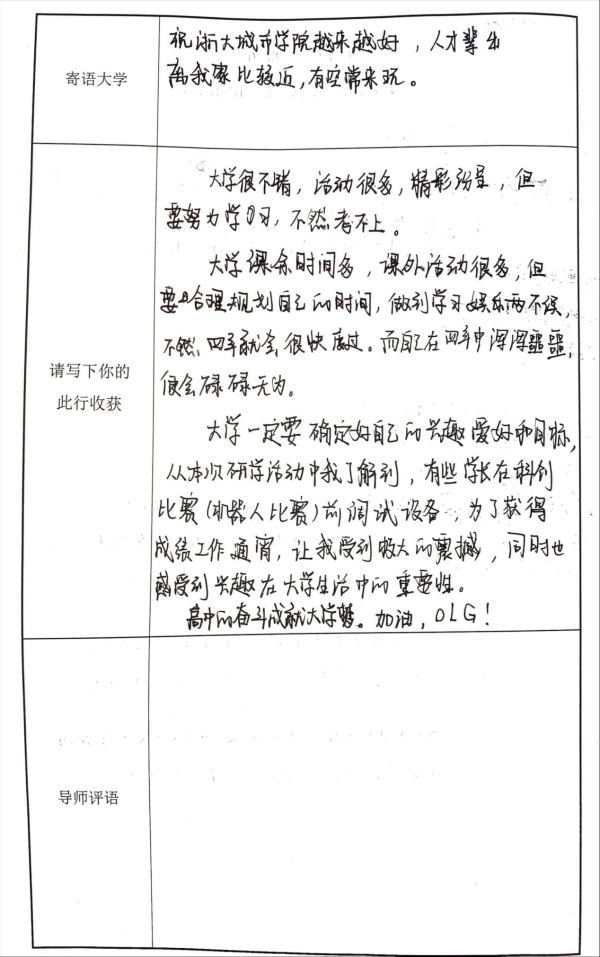 寄语大学
祝浙大城市学院越来越好，人才辈出
离我家比较近，有空常来玩。
请写下你的
此行收获
大学很不错，活动很多，精彩纷呈，但
要努力学习，不然考不上。
大学课余时间多，课外活动很多，但
要合理规划自己的时间，做到学习娱乐两不误，
不然，四年就会很快度过。而自己在四年中浑浑噩噩，
便会碌碌无为。
大学一定要确定好自己的兴趣爱好和目标，
从本次研学活动中我了解到，有些学长在科创
比赛（机器人比赛）前调试设备，为了获得
成绩工作通宵，让我受到极大的震撼，同时也
感受到兴趣在大学生活中的重要性。
高中的奋斗成就大学梦。加油，OLG！
导师评语